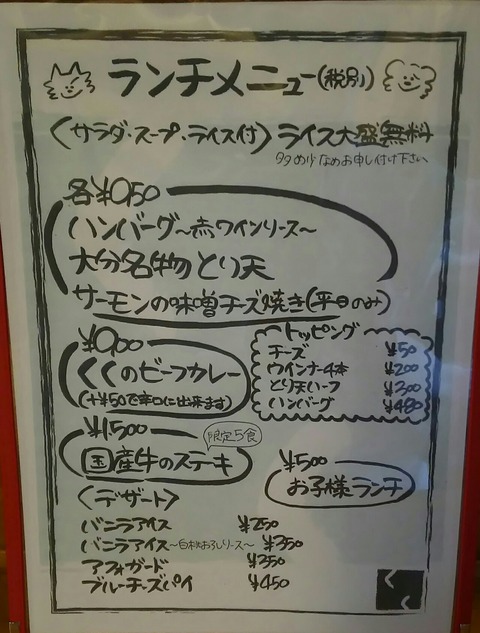 ランチメニュー(税別)
〈サラダ・スープ・ライス付〉ライス大盛無料
多め少なめお申し付け下さい
各¥950
ハンバーグ～赤ワインソース～
大分名物とり天
サーモンの味噌チーズ焼き(平日のみ)
¥900
くくのビーフカレー
(+¥50で辛口に出来ます)
トッピング
チーズ ¥50
ウインナー4本 ¥200
とり天ハーフ ¥300
ハンバーグ ¥480
¥1500 限定5食
国産牛のステーキ
¥500
お子様ランチ
〈デザート〉
バニラアイス ¥250
バニラアイス～白桃おろしソース～ ¥350
アフォガード ¥350
ブルーチーズパイ ¥450
くく